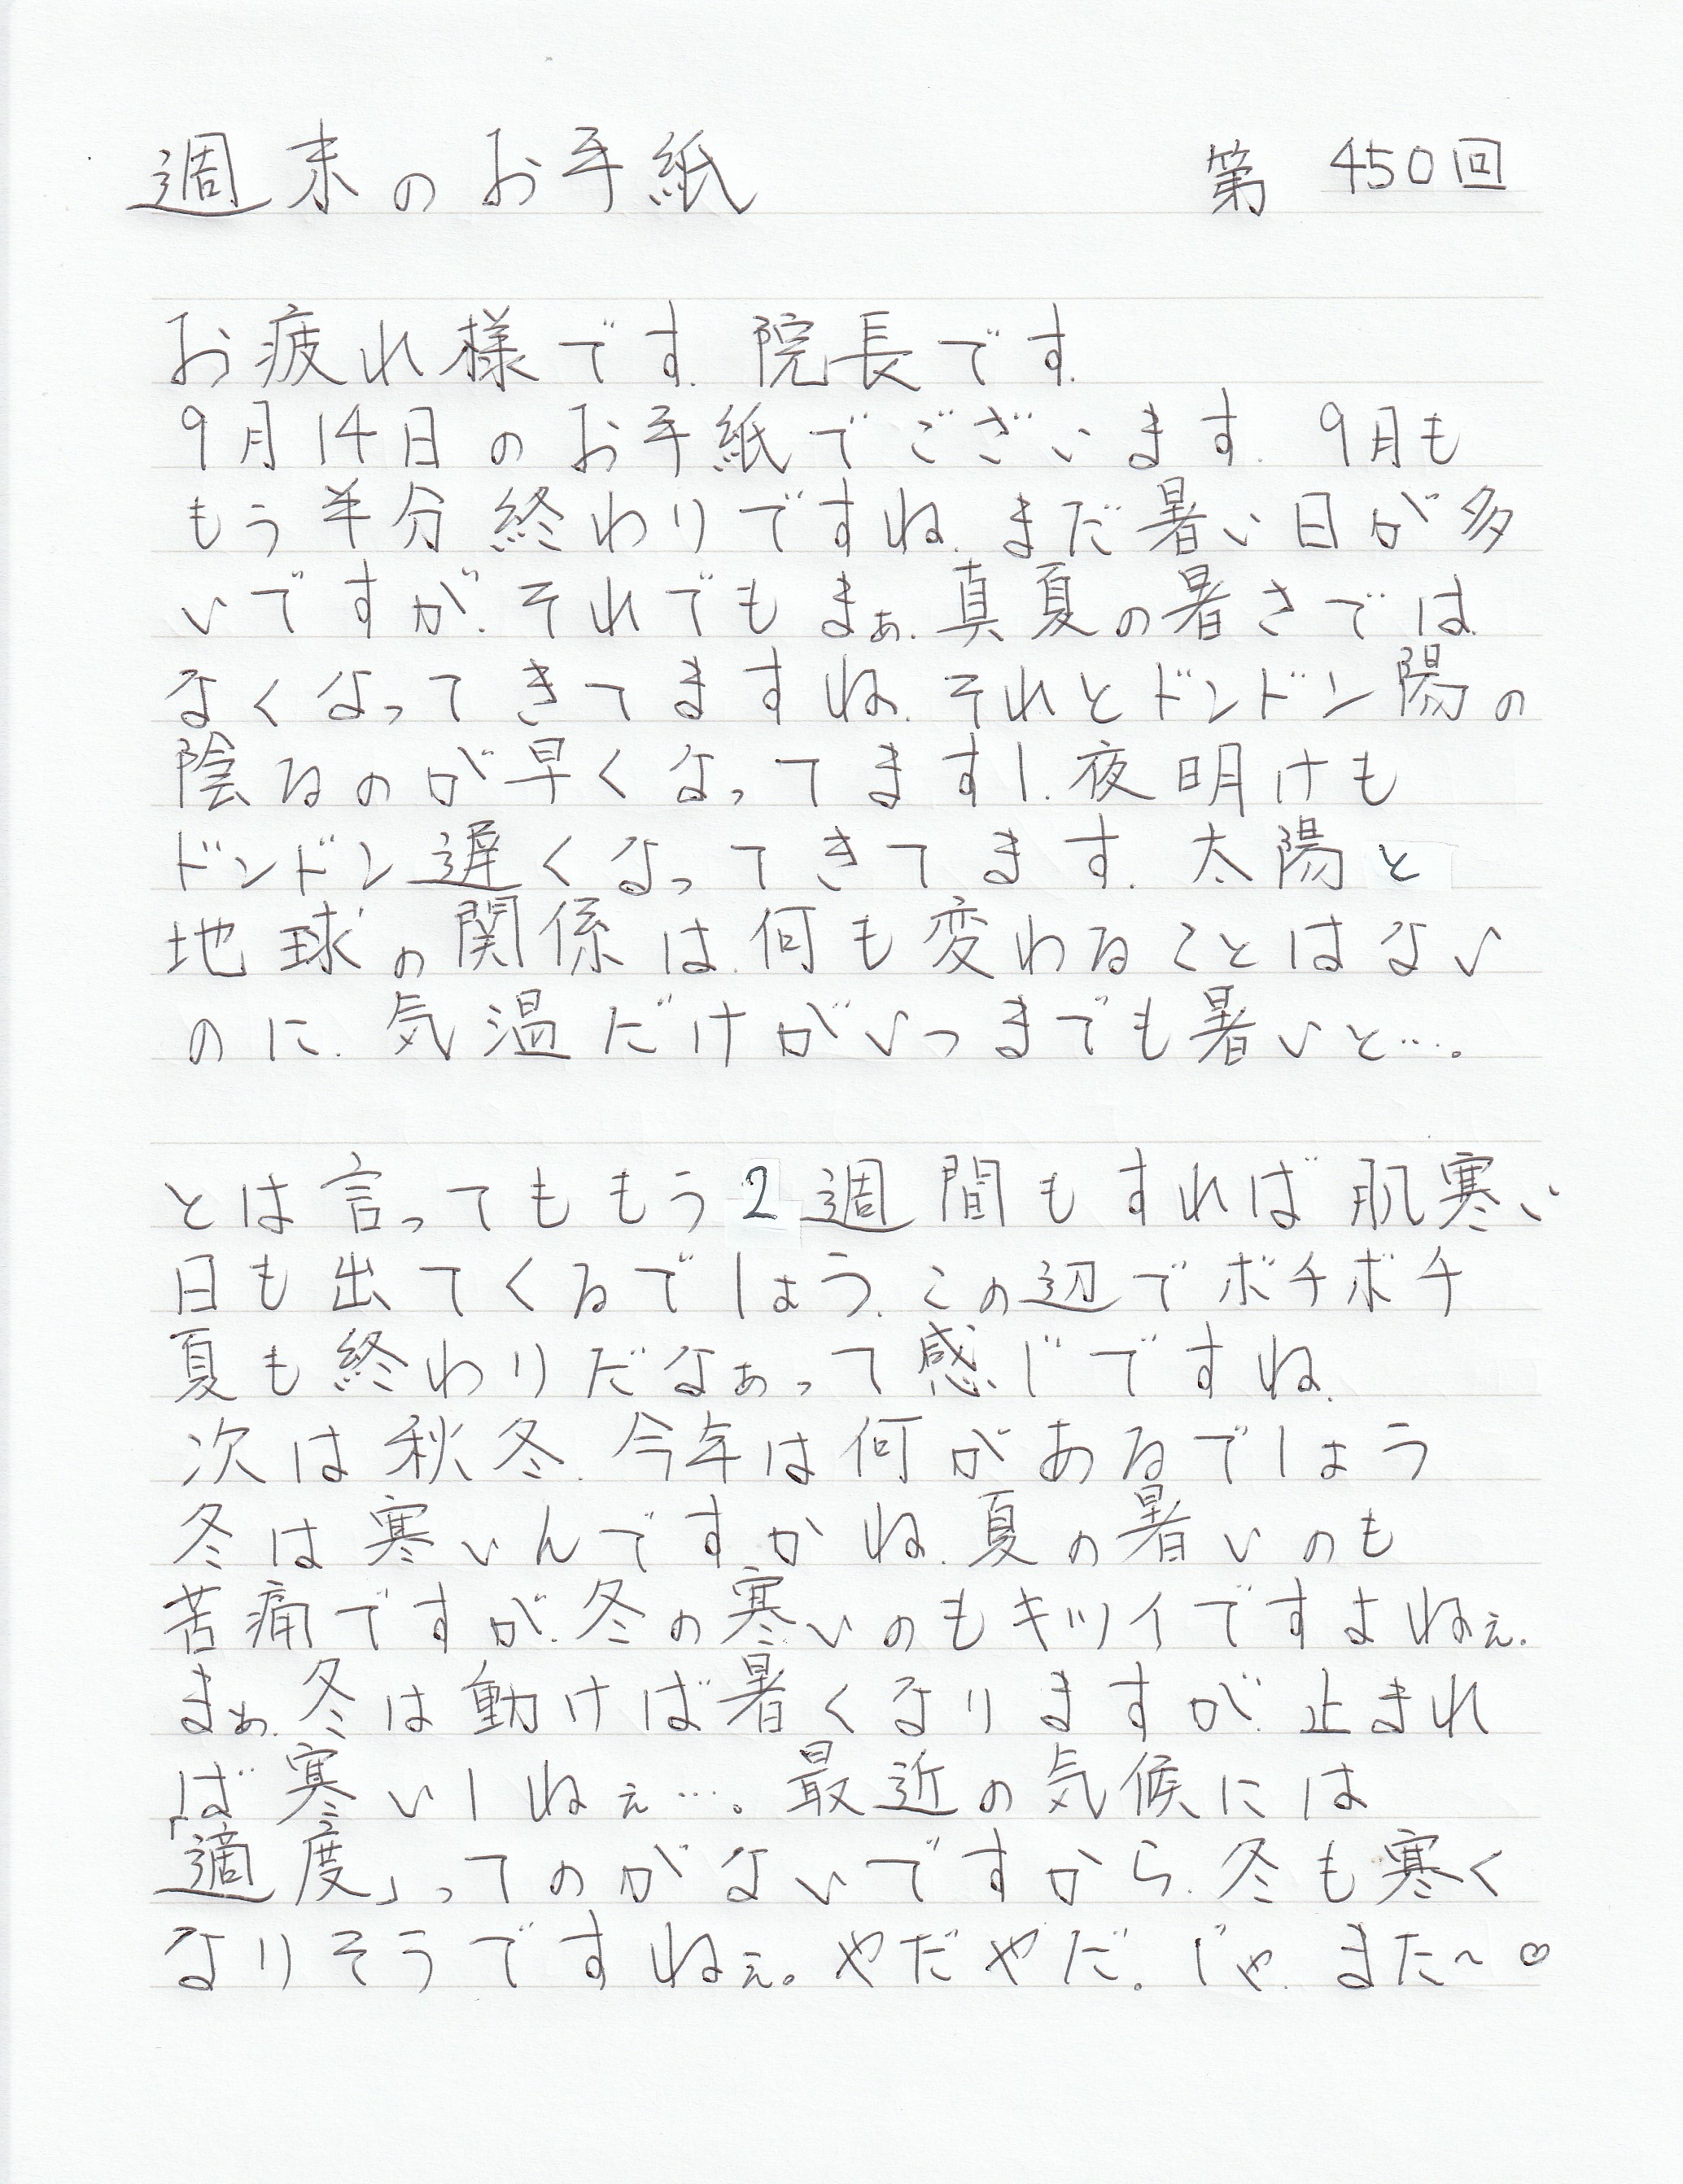 週末のお手紙 第450回
お疲れ様です.院長です.
9月14日のお手紙でございます.9月も
もう半分終わりですね.まだ暑い日が多
いですが.それでもまぁ.真夏の暑さでは
なくなってきてますね.それとドンドン陽の
陰るのが早くなってますし.夜明けも
ドンドン遅くなってきてます.太陽と
地球の関係は.何も変わることはない
のに.気温だけがいつまでも暑いと….
とは言ってももう2週間もすれば肌寒い
日も出てくるでしょう.この辺でボチボチ
夏も終わりだなぁって感じですね.
次は秋冬.今年は何があるでしょう
冬は寒いんですかね.夏の暑いのも
苦痛ですが.冬の寒いのもキツイですよねぇ.
まぁ.冬は動けば暑くなりますが.止まれ
ば寒いしねぇ…。最近の気候には
「適度」ってのがないですから.冬も寒く
なりそうですねぇ。やだやだ。じゃ.また~♡